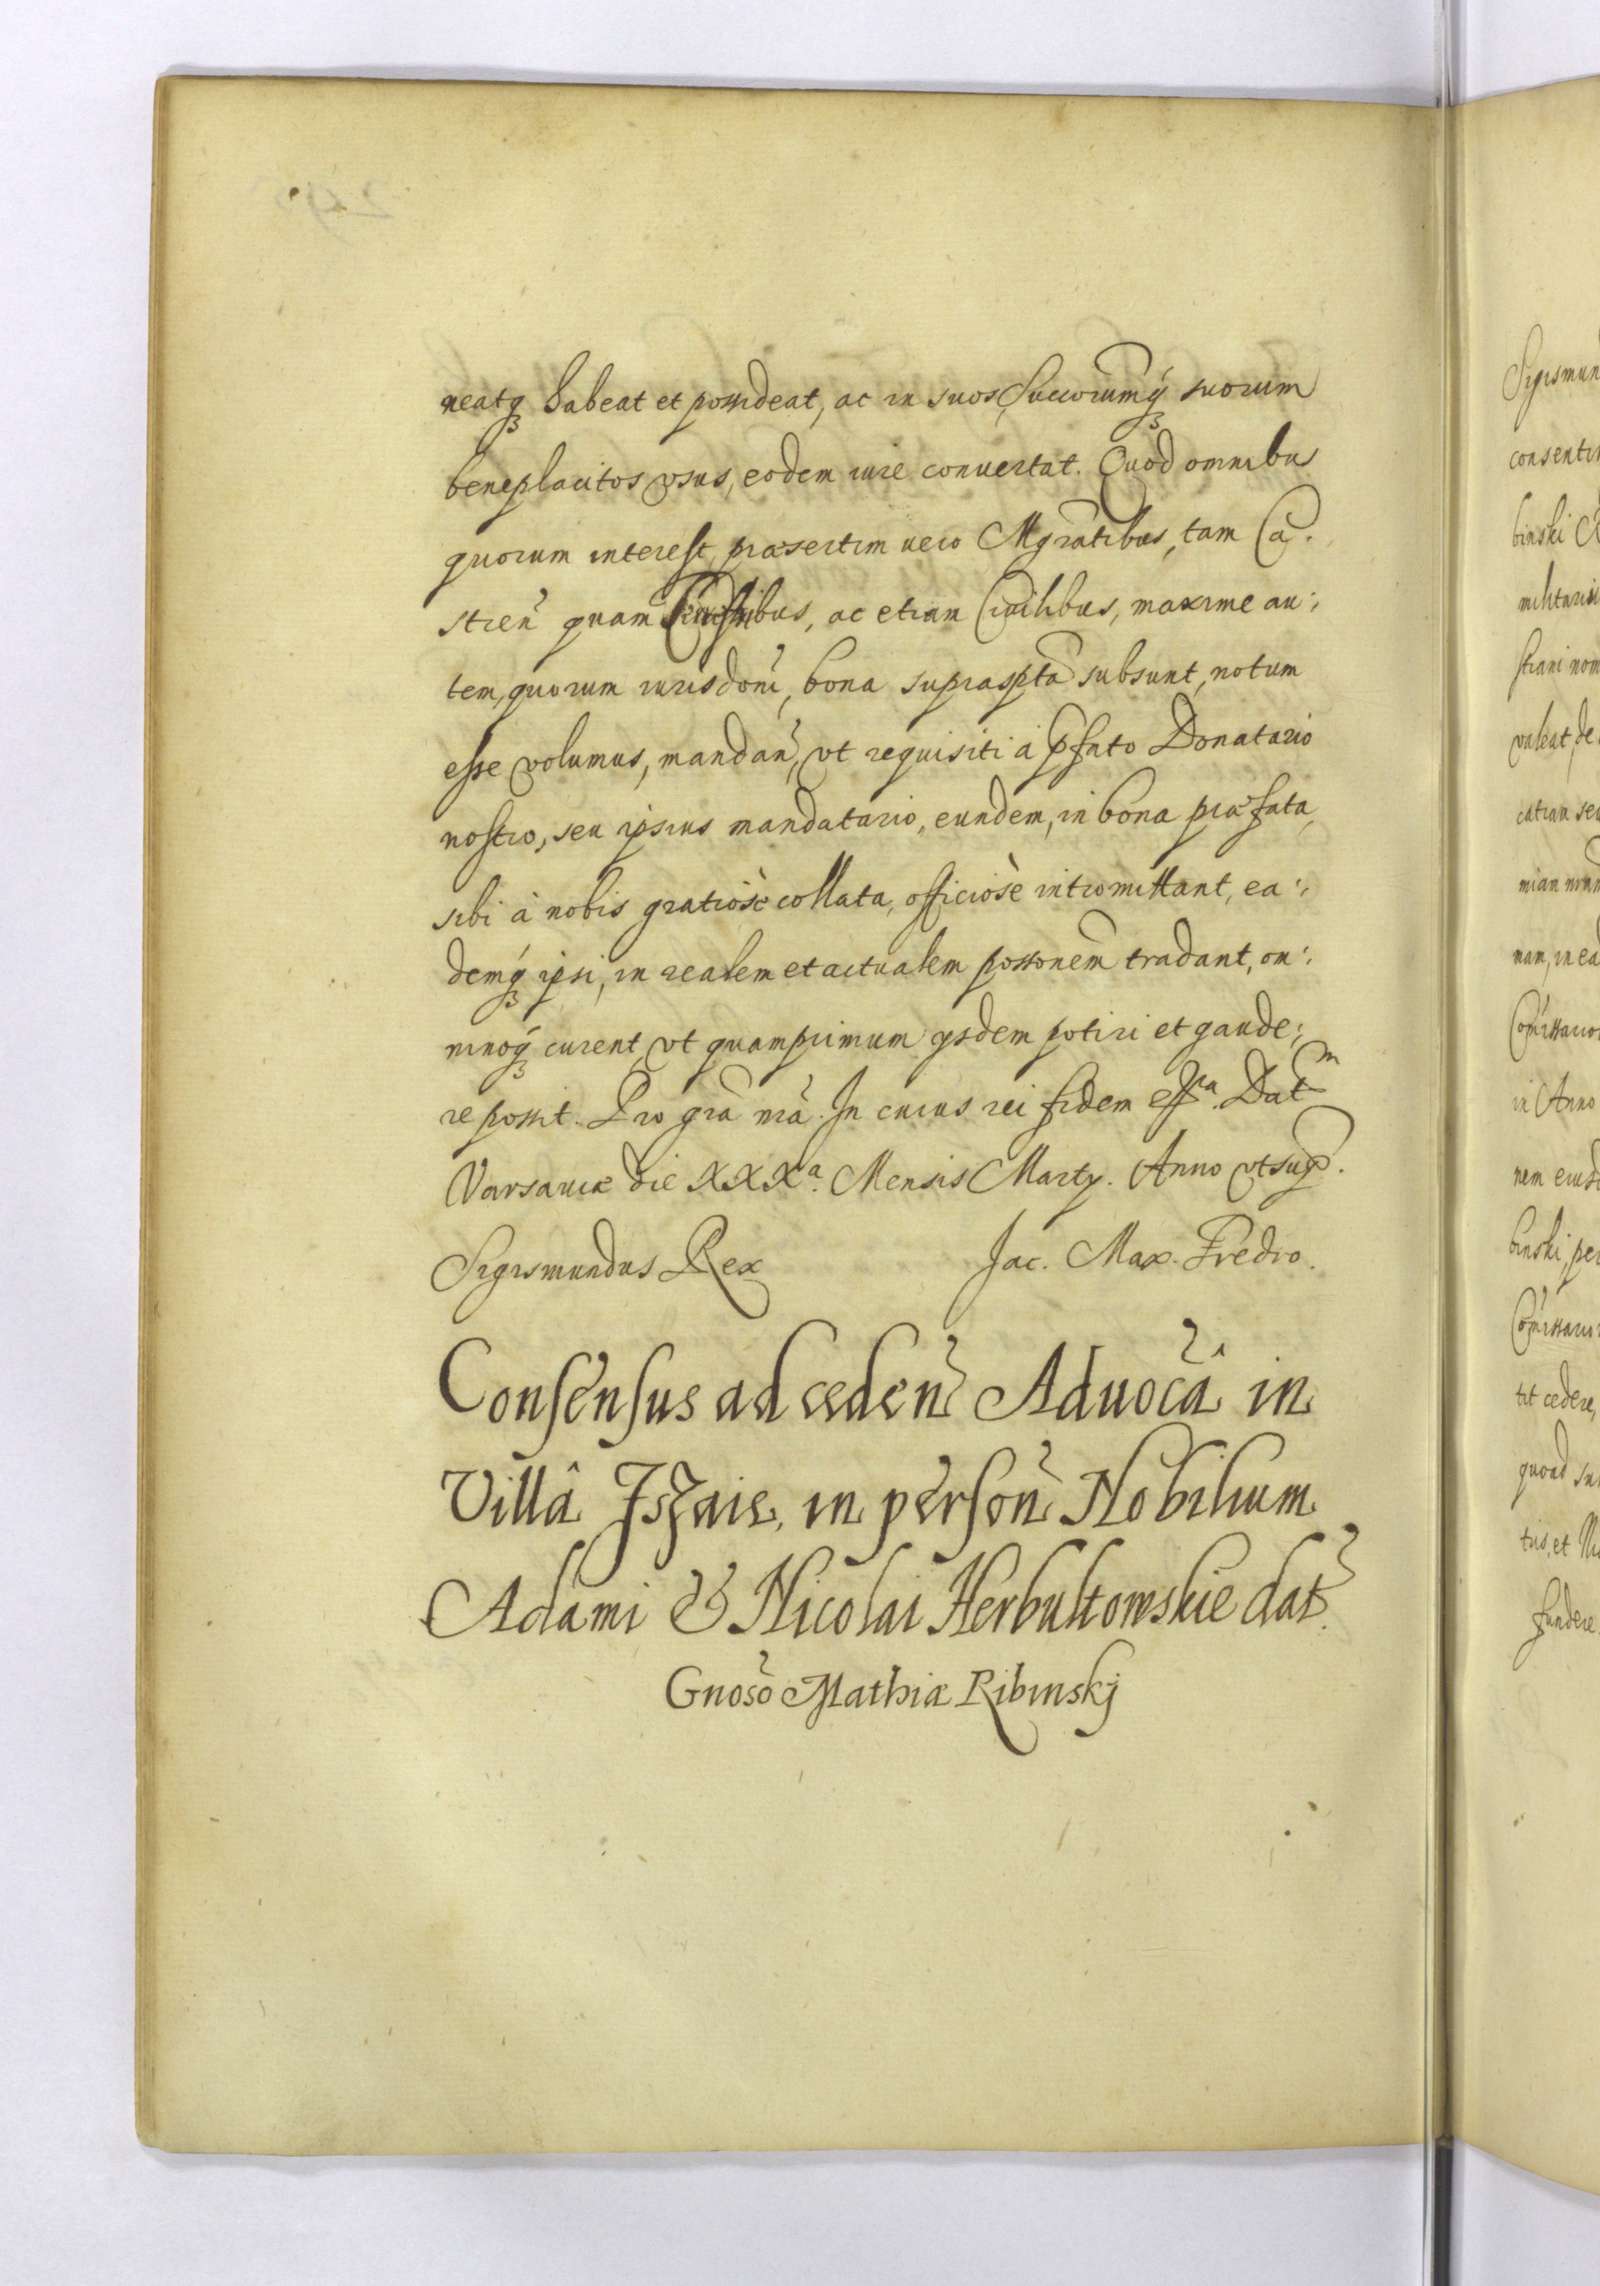 neatq3 habeat et possideat, ac in suos, Succorumq3 suorum
beneplacitos vsus, eodem iure conuertat. Quod omnibus
quorum interest, præsertim uero Mgratibus, tam Ca.
stren̄ quam ac etiam Ciuilibus, maxime au:,
tem, quorum iurisdoni, bona supraspta subsunt, notum
esse volumus, mandan̄, vt requisiti à pfato Donatario
nostro, seu ipsius mandatario, eundem, in bona præfata,
sibi à nobis gratiosè collata, officiosè intromittant, ea:,
demq3 ipsi, in realem et actualem possonem tradant, om:,
ninoq3 curent, vt quamprimum ysdem potiri et gaude:,
re possit. Pro gra nra. In cuius rei fidem etc. Dat m
Varsauiæ die XXXa. Mensis Marty. Anno vt sup.
Sigismundus Rex Jac. Max. Fredro.
Consensus ad ceden̄ Aduocâ in
Villâ Iszaie, in person̄ Nobilium
Adami & Nicolai Herbultowskie dat.
Gnoso Mathiæ Ribinskj
Sigismun
consenti
binski
militaris
striani nom
valeat, de
catian seu
mian
nam, in ea
Comissario
in Anno
nem eiusd
binski, per
Comissario
tit cedere,
quoad su
tris, et Ni
fundere